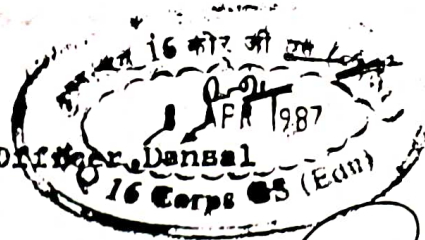 16 कोर जी एस
1987
Officer, Dansal
16 Corps GS (Edn)